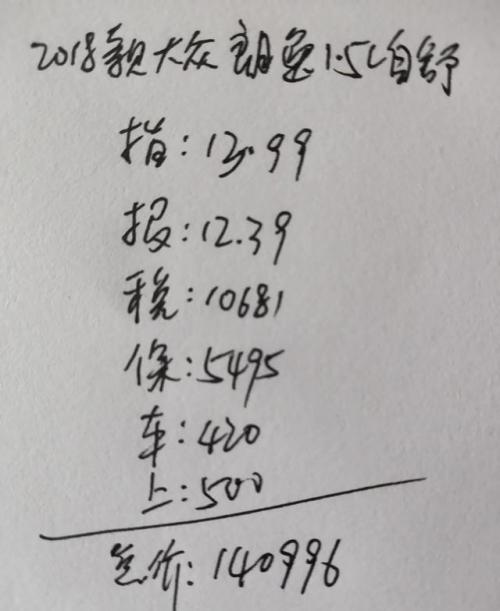 2018款大众朗逸1.5L自舒
指:13.99
报:12.39
税:10681
保:5495
车:420
上:500
总价:140996